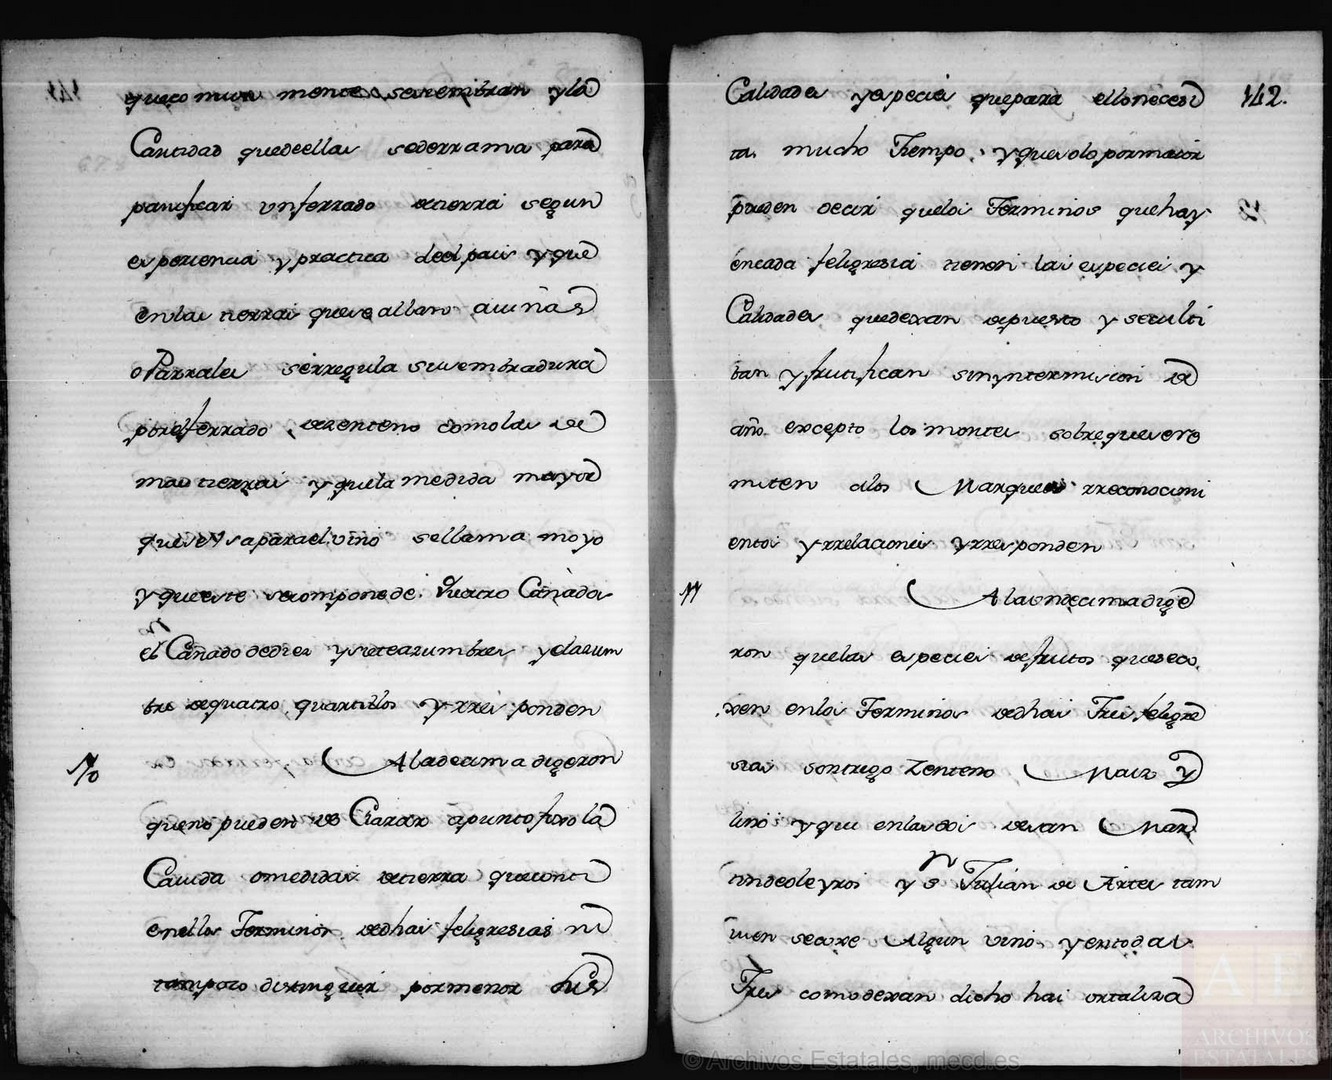 que comunmente se siembran y la
Cantidad que de ellas se derrama para
panificar un ferrado de tierra segun
esperiencia y practica de el pais y que
en las tierras que se allan a viñas
o Parrales se rregula su sembradura
por el ferrado de zenteno como las de
mas tierras y que la medida mayor
que se usa para el vino se llama moyo
y que este se compone de quatro Cañados
el Cañado de diez y siete azumbres y el azum
bre de quatro quartillos y rresponden
10 A la decima digeron
que no pueden declarar a punto fixo la
Cavida o medidas de tierra que conti
enen los Terminos de dhas feligresias ni
tampoco distinguir por menor sus
Calidades y especies que para ello necesi 142.
ta mucho Tiempo, y que solo por maior
pueden decir que los Terminos que hay
en cada feligresia tienen las especies y
Calidades que dexan depuesto y se culti
ban y frutifican sin yntermision de
año excepto los montes sobre que se re
miten a los Marques rreconocimi
entos y rrelaciones y rresponden
11 A la undecima dige
ron que las especies de frutos que se co
xen en los Terminos de dhas Tres feligre
sias son trigo Zenteno Maiz y
lino y que en las dos de san Mar
tin de oleyros y sn Julian de Artes tam
vien se coxe Algun vino, y en todas
Tres como dexan dicho hai ortaliza
© Archivos Estatales, mecd.es
ARCHIVOS
ESTATALES